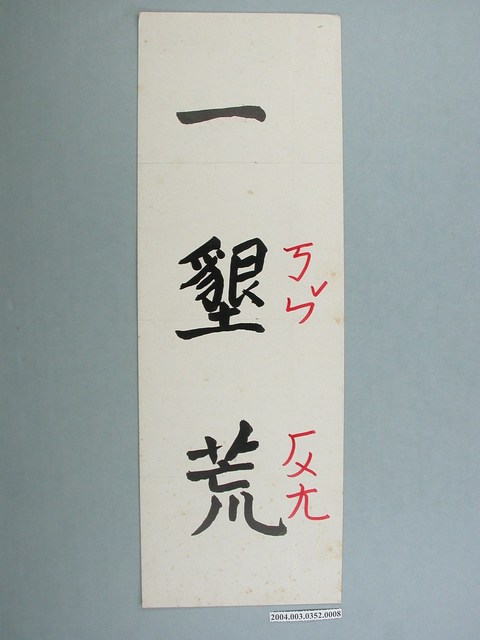 一
墾 ㄎㄣˇ
荒 ㄏㄨㄤ
2004.003.0352.0008